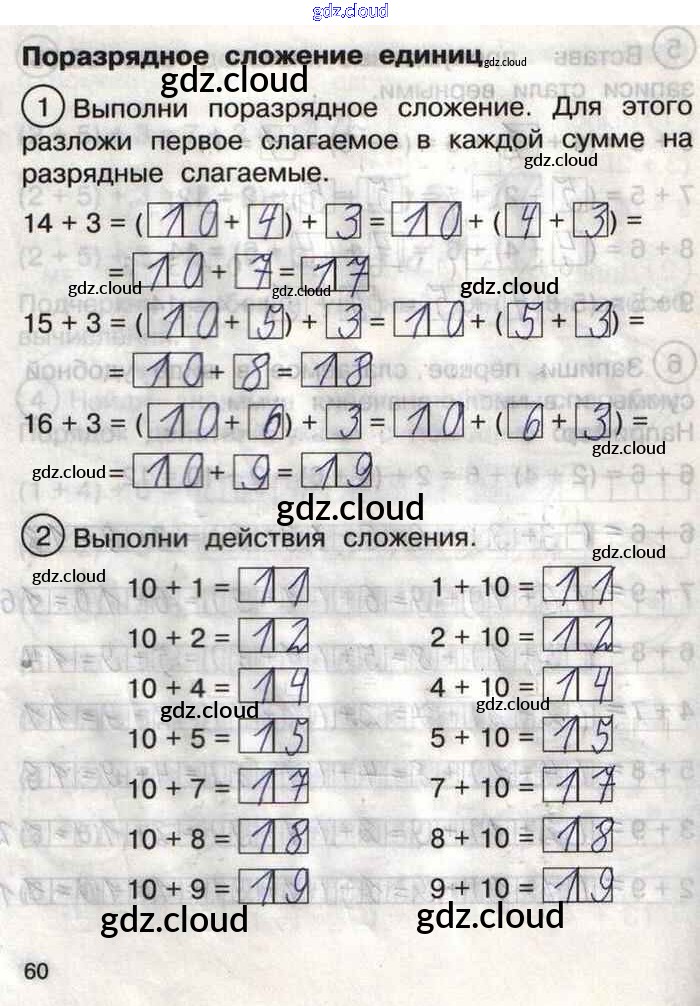 gdz.cloud
Поразрядное сложение единиц gdz.cloud
gdz.cloud
1 Выполни поразрядное сложение. Для этого
разложи первое слагаемое в каждой сумме на
gdz.cloud
разрядные слагаемые.
14 + 3 = (10 + 4) + 3 = 10 + (4 + 3) =
= 10 + 7 = 17
gdz.cloud gdz.cloud gdz.cloud
15 + 3 = (10 + 5) + 3 = 10 + (5 + 3) =
= 10 + 8 = 18
16 + 3 = (10 + 6) + 3 = 10 + (6 + 3) =
gdz.cloud = 10 + 9 = 19
gdz.cloud
2 Выполни действия сложения.
gdz.cloud
gdz.cloud
10 + 1 = 11 1 + 10 = 11
10 + 2 = 12 2 + 10 = 12
10 + 4 = 14 4 + 10 = 14
gdz.cloud gdz.cloud
10 + 5 = 15 5 + 10 = 15
10 + 7 = 17 7 + 10 = 17
10 + 8 = 18 8 + 10 = 18
10 + 9 = 19 9 + 10 = 19
gdz.cloud gdz.cloud
60